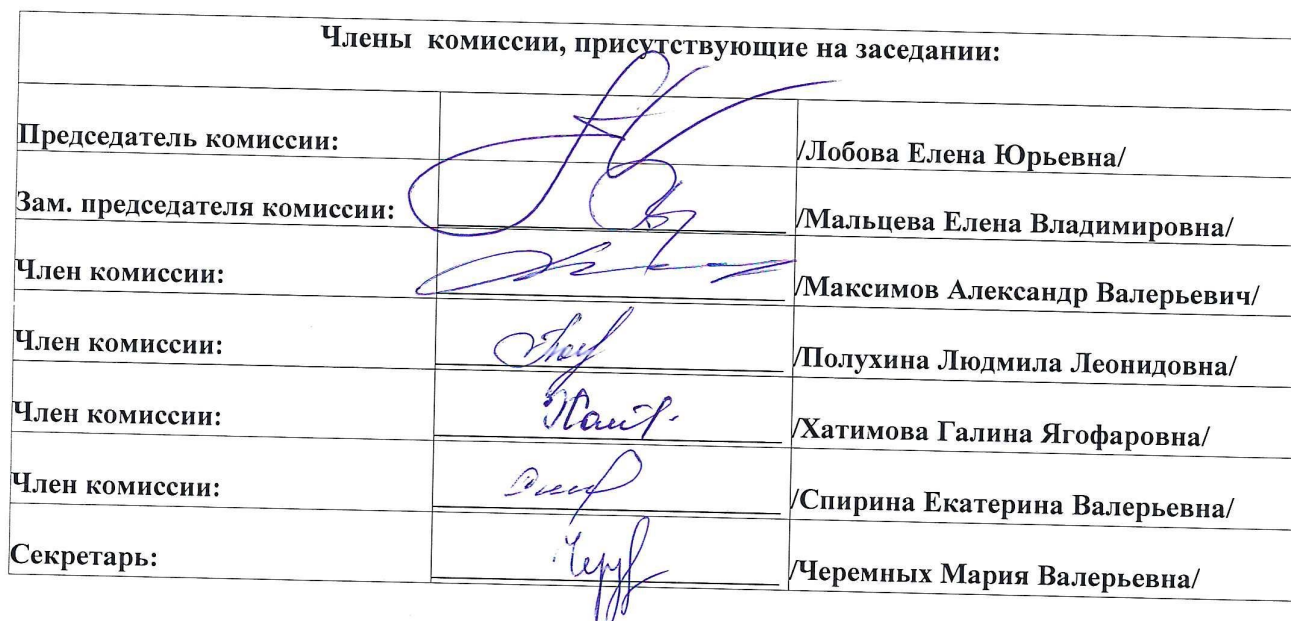 Члены комиссии, присутствующие на заседании:
Председатель комиссии: /Лобова Елена Юрьевна/
Зам. председателя комиссии: /Мальцева Елена Владимировна/
Член комиссии: /Максимов Александр Валерьевич/
Член комиссии: /Полухина Людмила Леонидовна/
Член комиссии: /Хатимова Галина Ягофаровна/
Член комиссии: /Спирина Екатерина Валерьевна/
Секретарь: /Черемных Мария Валерьевна/